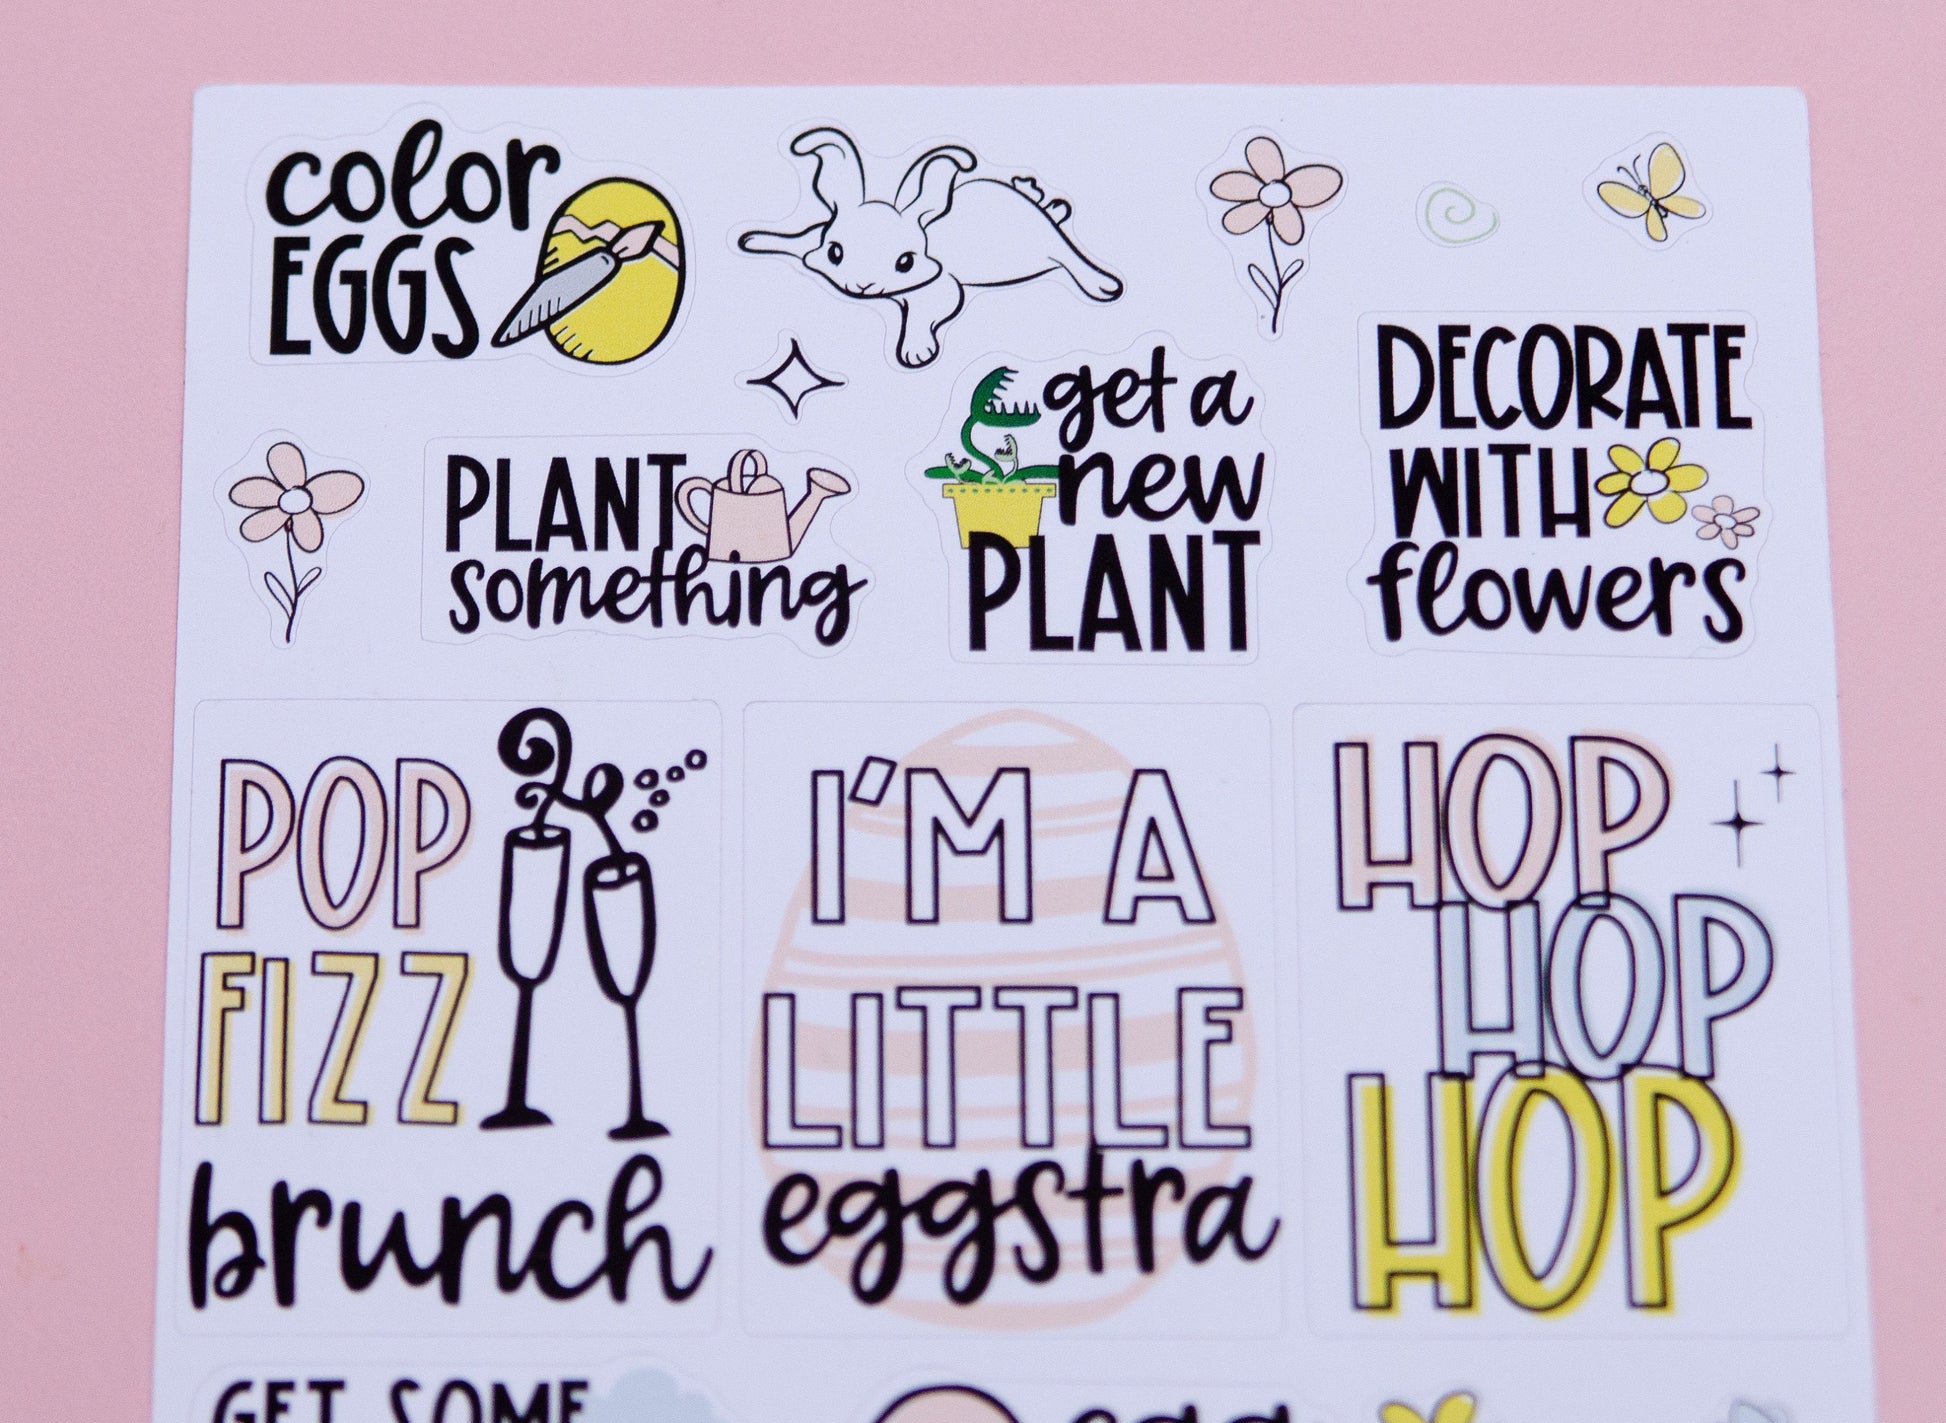 color
EGGS
PLANT
something
get a
new
PLANT
DECORATE
WITH
flowers
POP
FIZZ
brunch
I'M A
LITTLE
eggstra
HOP
HOP
HOP
GET SOME
egg